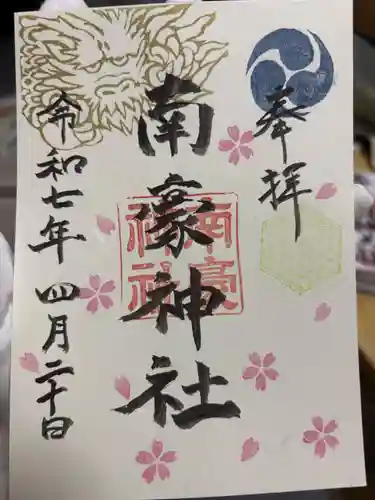 奉拝
南濠神社
南濠神社
令和七年四月二十日